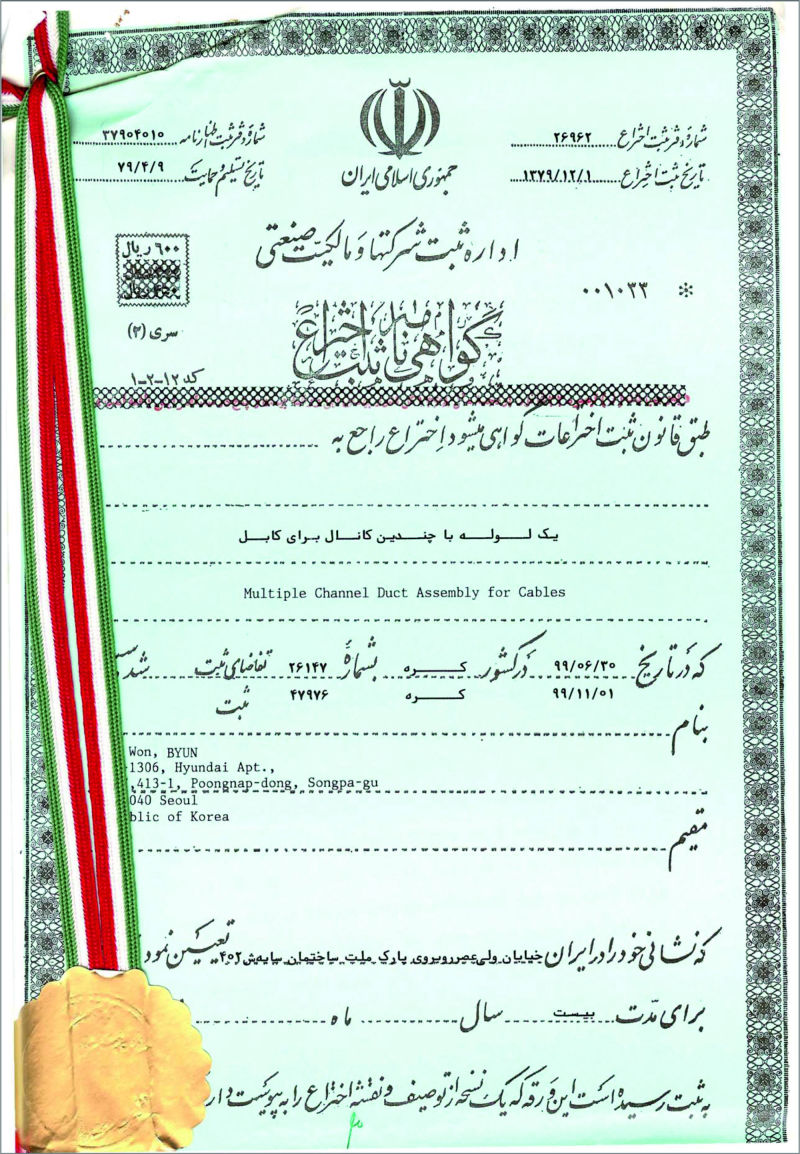 جمهوری اسلامی ایران
شماره دفتر ثبت اختراع ۲۶۹۶۲
تاریخ ثبت اختراع ۱۳۷۹/۱۲/۱
شماره دفتر ثبت اظهارنامه ۳۷۹۰۴۰۱۰
تاریخ تسلیم و حمایت ۷۹/۴/۹
اداره ثبت شرکتها و مالکیت صنعتی
۶۰۰ ریال
۰۰۱۰۳۳ *
سری (۲)
گواهی نامه ثبت اختراع
کد ۱۲-۲-۱
طبق قانون ثبت اختراعات گواهی میشود اختراع راجع به
یک لوله با چندین کانال برای کابل
Multiple Channel Duct Assembly for Cables
که در تاریخ ۹۹/۰۶/۳۰ در کشور کره بشماره ۲۶۱۴۷ تقاضای ثبت شده
۹۹/۱۱/۰۱ کره ۴۷۹۷۶ ثبت
بنام
Won, BYUN
1306, Hyundai Apt.,
,413-1, Poongnap-dong, Songpa-gu
040 Seoul
blic of Korea
مقیم
که نشانی خود را در ایران خیابان ولی عصر روبروی پارک ملت ساختمان سایه ش ۴۰۲ تعیین نمود
برای مدت بیست سال ماه
به ثبت رسیده است این ورقه که یک نسخه از توصیف و نقشه اختراع را به پیوست دار